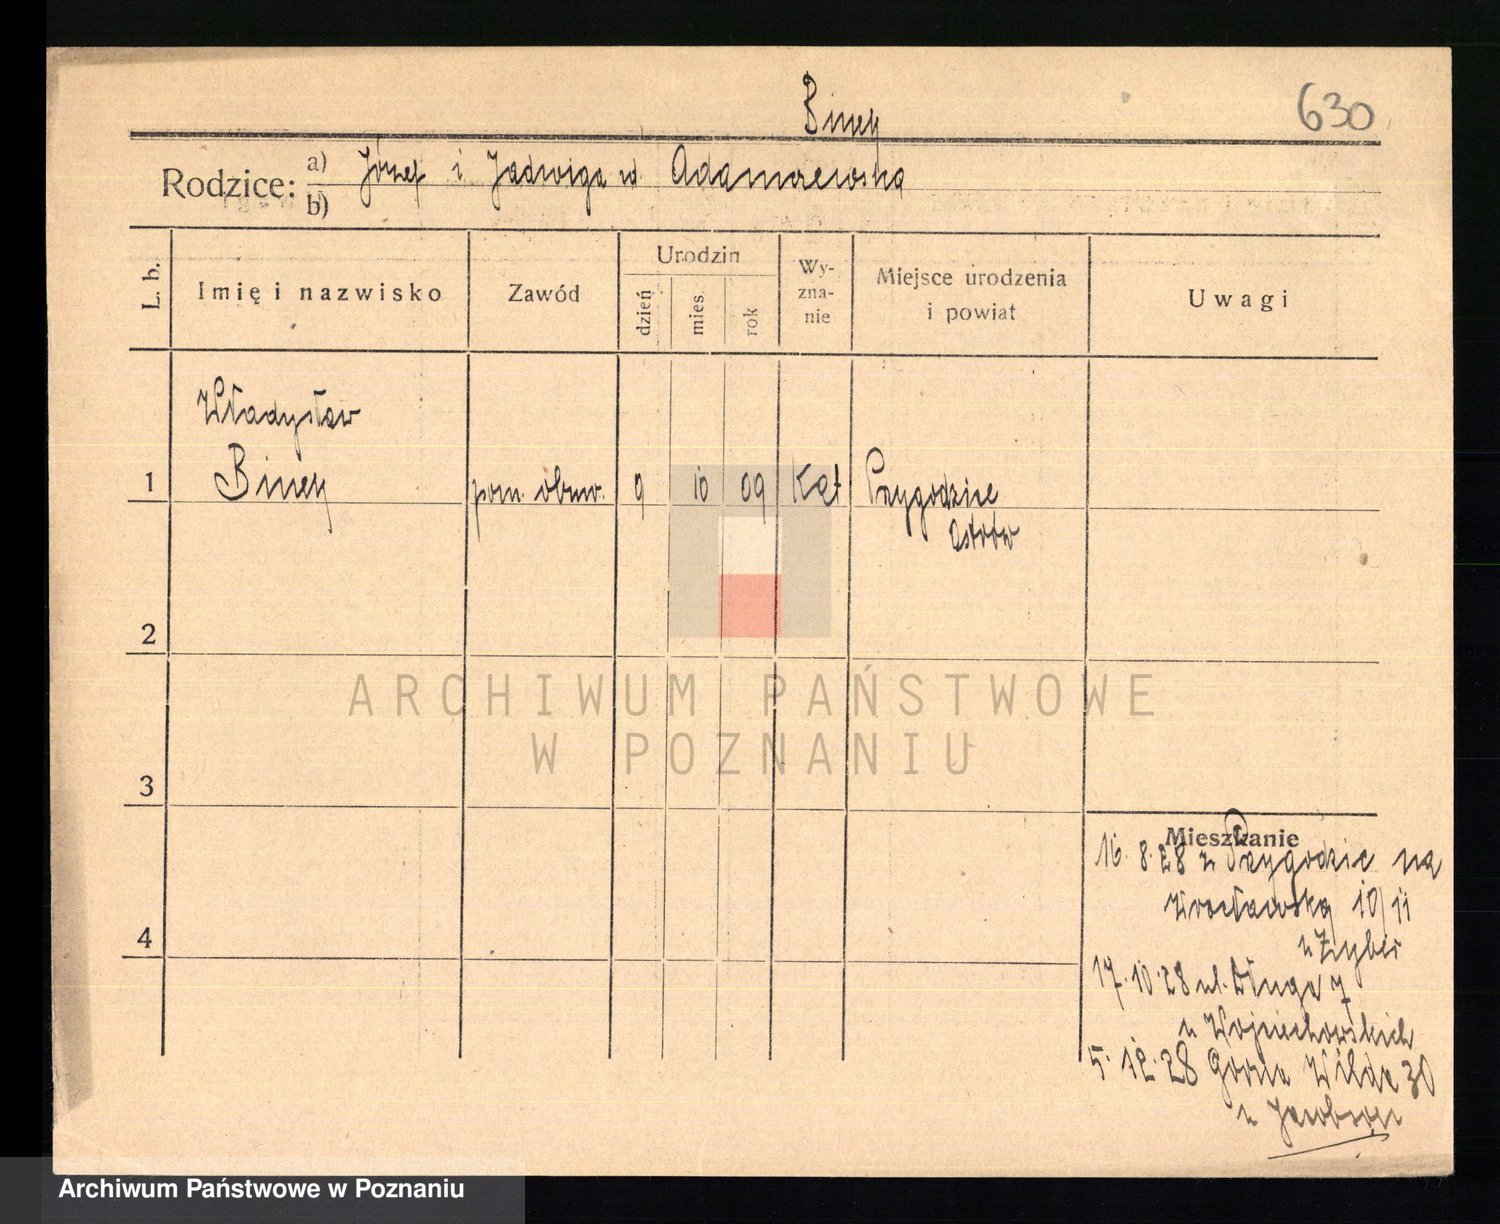 Binek
630
Rodzice: a) Józef i Jadwiga zd. Adamczewska
b)
L. b.
Imię i nazwisko
Zawód
Urodzin
dzień
mies.
rok
Wy-
zna-
nie
Miejsce urodzenia
i powiat
Uwagi
Władysław
1 Binek
pom. obuw. 9 10 09 Kat Przygodzice
Ostrów
2
ARCHIWUM PAŃSTWOWE
W POZNANIU
3
Mieszkanie
16. 8. 28 z Przygodzic na
Wrocławską 10/11
u
4
17. 10. 28 ul. Długa 7
u Wojciechowskich
5. 12. 28 Górna Wilda 30
u
Archiwum Państwowe w Poznaniu